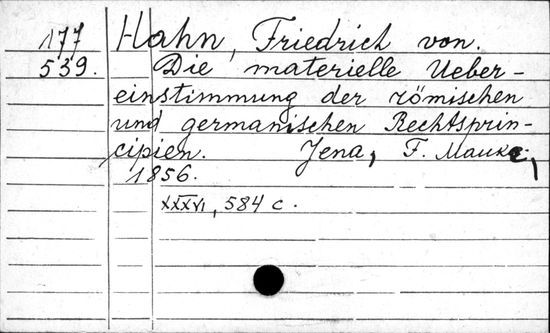 177 Hahn, Friedrich von.
539. Die materielle Ueber-
einstimmung der römischen
und germanischen Rechtsprin-
cipien. Jena, F. Mauke,
1856.
XXXVI, 584 c.